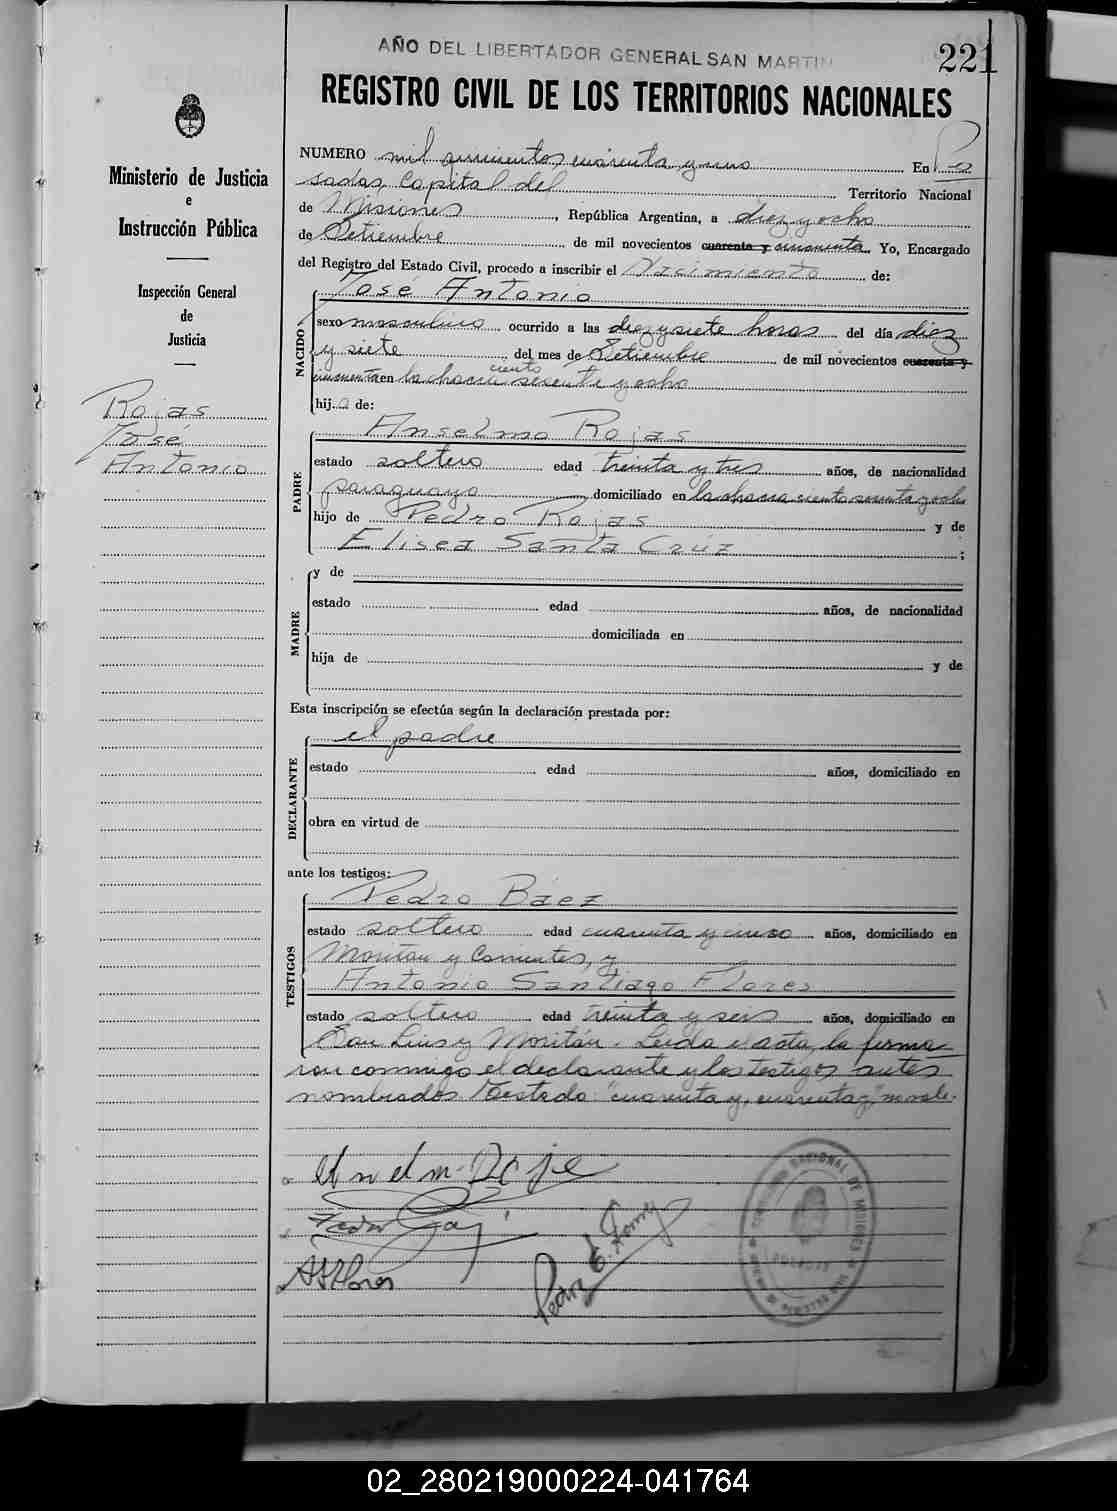 AÑO DEL LIBERTADOR GENERAL SAN MARTIN
221
REGISTRO CIVIL DE LOS TERRITORIOS NACIONALES
Ministerio de Justicia
e
Instrucción Pública
Inspección General
de
Justicia
Rojas
José
Antonio
NUMERO mil quinientos cuarenta y uno En Po
sadas, Capital del Territorio Nacional
de Misiones, República Argentina, a diez y ocho
de Setiembre de mil novecientos cuarenta y cincuenta Yo, Encargado
del Registro del Estado Civil, procedo a inscribir el Nacimiento de:
NACIDO
José Antonio
sexo masculino ocurrido a las diez y siete horas del día diez
y siete del mes de Setiembre de mil novecientos cuarenta y
cincuenta en la chacra ciento sesenta y ocho
hij.o de:
PADRE
Anselmo Rojas
estado soltero edad treinta y tres años, de nacionalidad
paraguayo domiciliado en la chacra ciento sesenta y ocho
hijo de Pedro Rojas y de
Elisea Santa Cruz ;
MADRE
y de
estado edad años, de nacionalidad
domiciliada en
hija de y de
Esta inscripción se efectúa según la declaración prestada por:
DECLARANTE
el padre
estado edad años, domiciliado en
obra en virtud de
ante los testigos:
TESTIGOS
Pedro Báez
estado soltero edad cuarenta y cinco años, domiciliado en
Moritán y Corrientes, y
Antonio Santiago Flores
estado soltero edad treinta y seis años, domiciliado en
San Luis y Moritán. Leída el acta, la firma-
ron conmigo el declarante y los testigos antes
nombrados. Testado: "cuarenta y, cuarenta y," no vale.
ASFlores
02_280219000224-041764